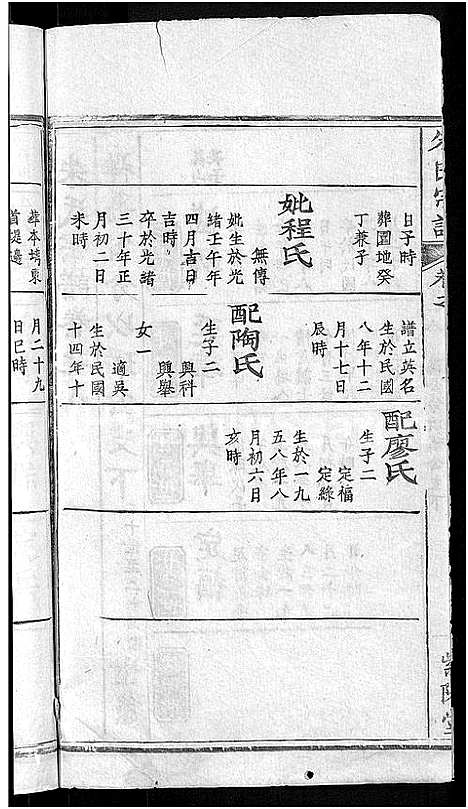 朱氏宗譜
紫陽堂
日子時
葬園地癸
丁兼子
妣程氏
無傳
妣生於光
緒壬午年
四月吉日
吉時
卒於光緒
三十年正
月初二日
未時
譜立英名
生於民國
八年十二
月十七日
辰時
配陶氏
生子二
興科
興舉
女一
適吳
生於民國
十四年十
配廖氏
生子二
定福
定緣
生於一九
五八年八
月初六日
亥時
葬本埼東
首堤邊
月二十九
日巳時